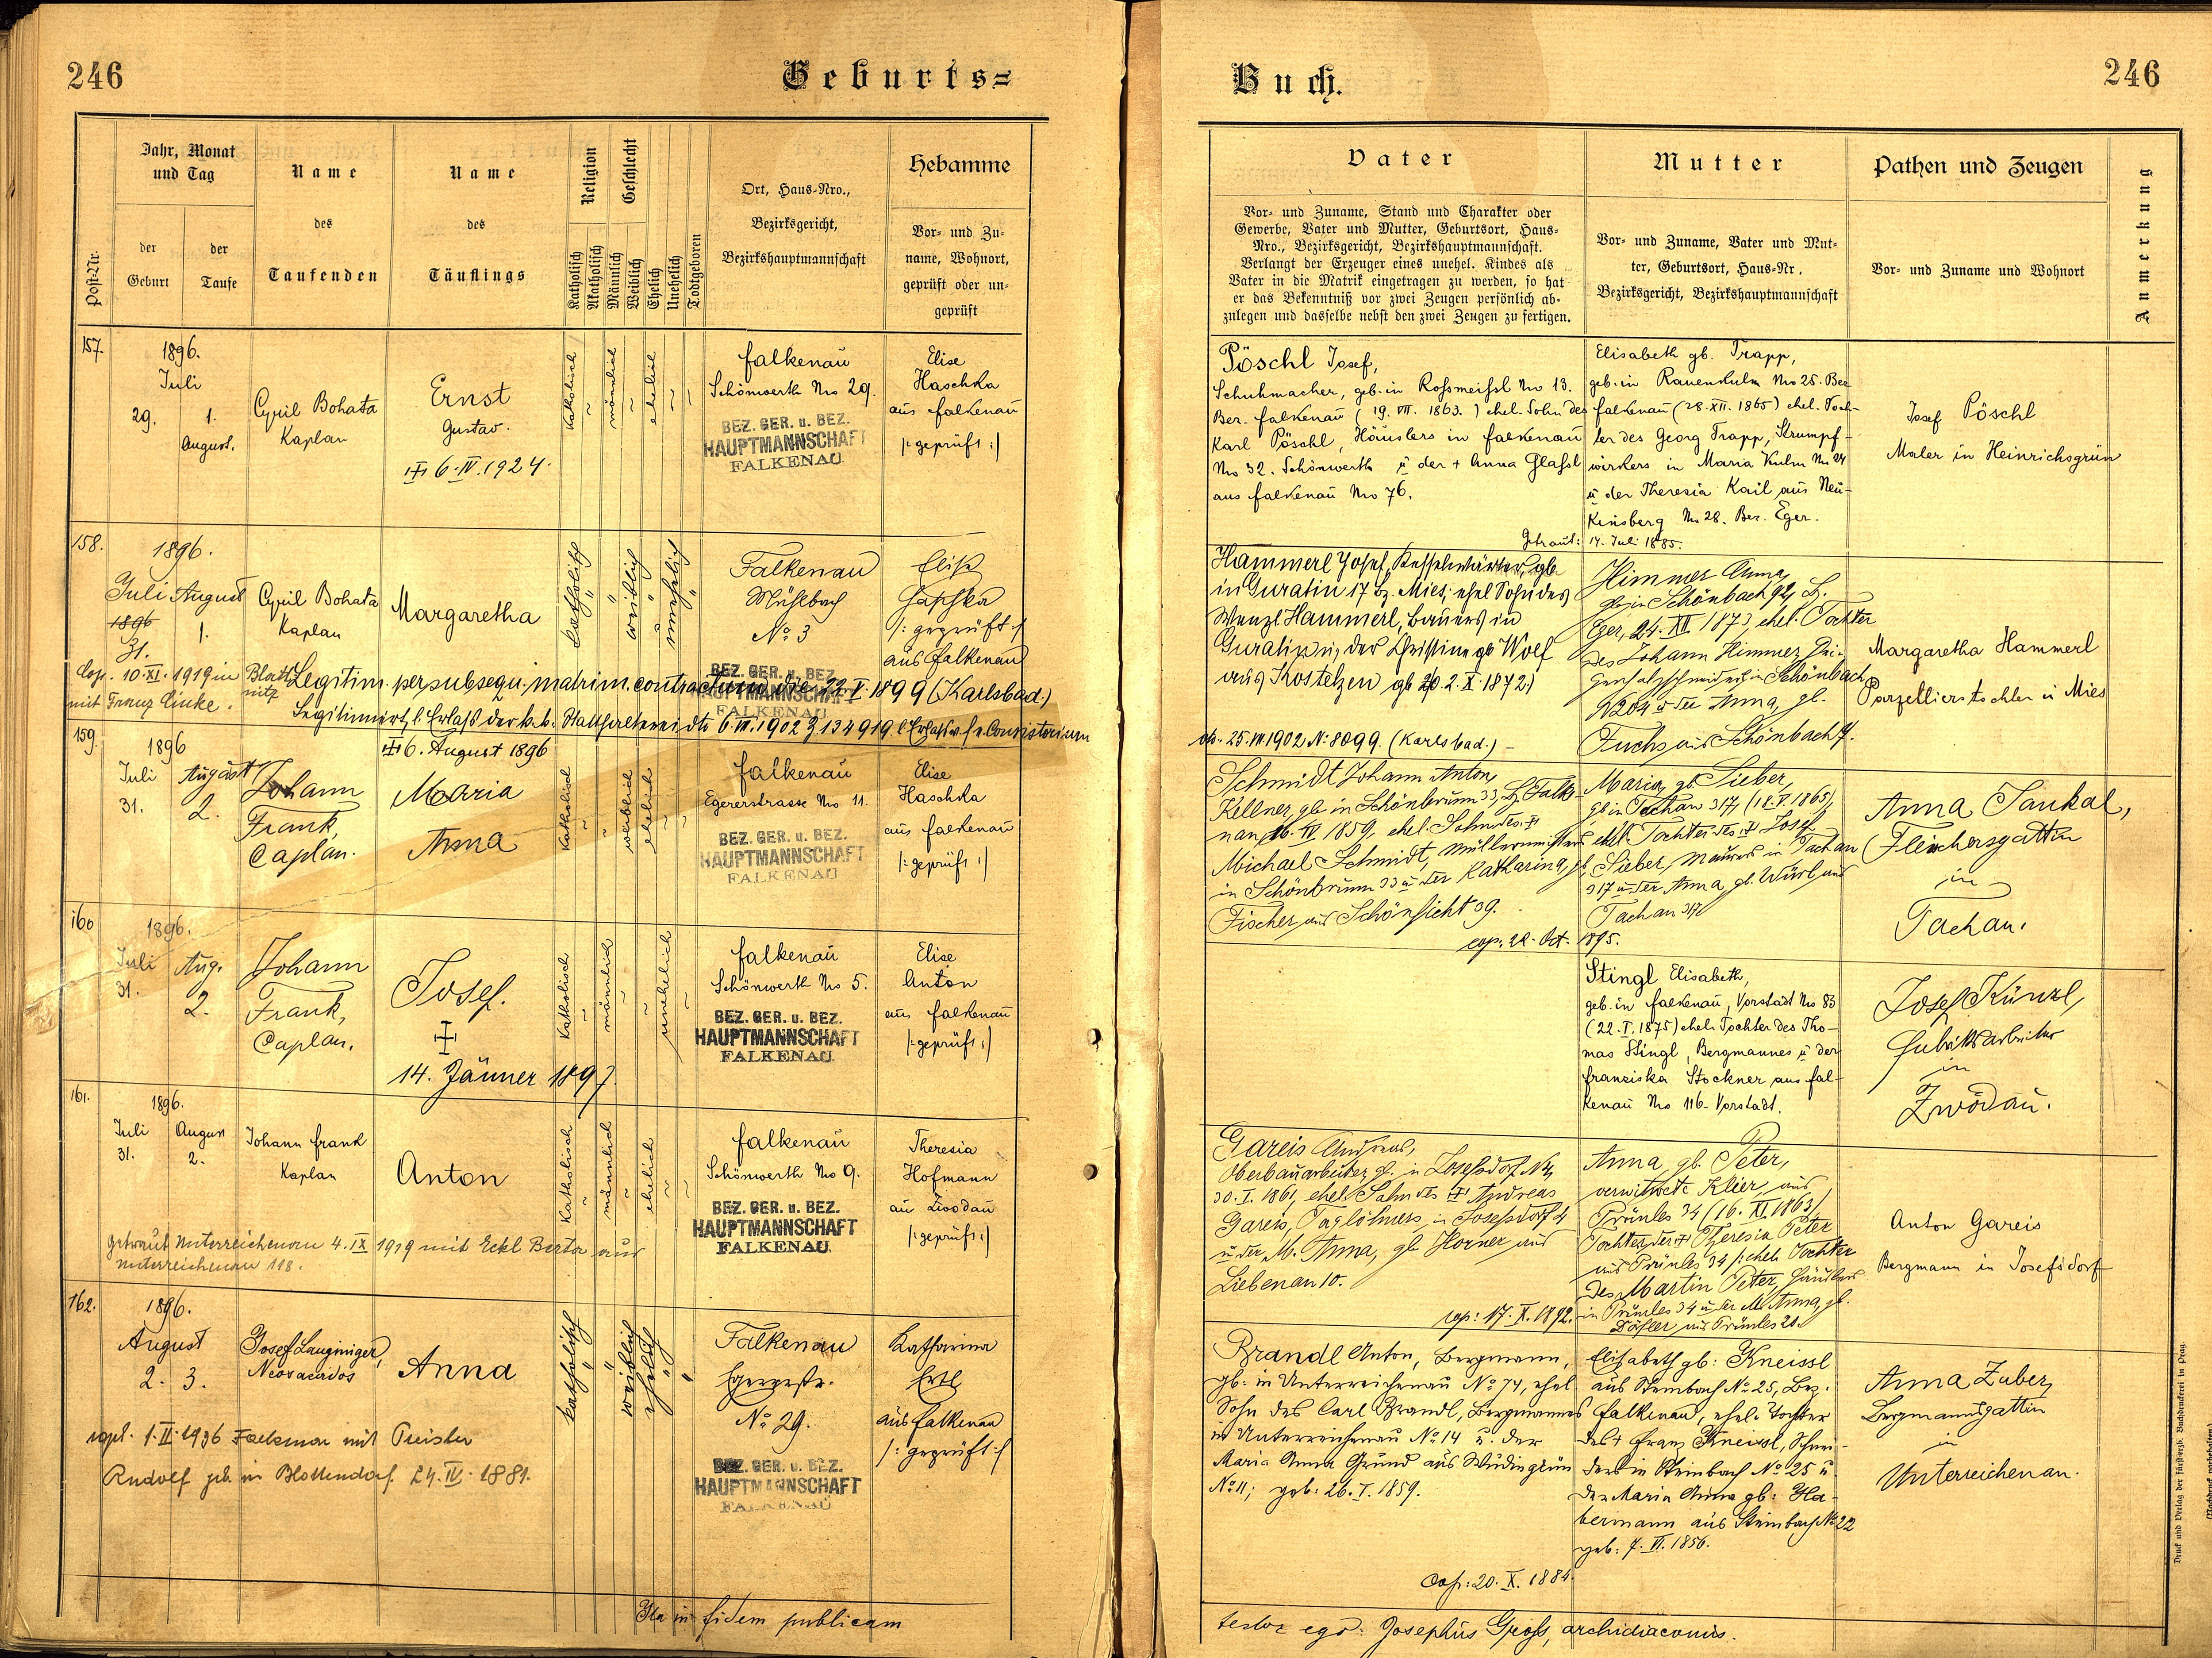 246
Geburts=
Buch.
246
Post-Nr.
Jahr, Monat
und Tag
der
Geburt
der
Taufe
Name
des
Taufenden
Name
des
Täuflings
Religion
Katholisch
Akatholisch
Geschlecht
Männlich
Weiblich
Ehelich
Unehelich
Todtgeboren
Ort, Haus-Nro.,
Bezirksgericht,
Bezirkshauptmannschaft
Hebamme
Vor- und Zu-
name, Wohnort,
geprüft oder un-
geprüft
Vater
Vor- und Zuname, Stand und Charakter oder
Gewerbe, Vater und Mutter, Geburtsort, Haus-
Nro., Bezirksgericht, Bezirkshauptmannschaft.
Verlangt der Erzeuger eines unehel. Kindes als
Vater in die Matrik eingetragen zu werden, so hat
er das Bekenntniß vor zwei Zeugen persönlich ab-
zulegen und dasselbe nebst den zwei Zeugen zu fertigen.
Mutter
Vor- und Zuname, Vater und Mut-
ter, Geburtsort, Haus-Nr.,
Bezirksgericht, Bezirkshauptmannschaft
Pathen und Zeugen
Vor- und Zuname und Wohnort
Anmerkung
157.
1896.
Juli
29.
1.
August.
Cyril Bohata
Kaplan
Ernst
Gustav.
6.IV.1924.
Katholisch
männlich
ehelich
Falkenau
Schönwerth No 29.
BEZ. GER. u. BEZ.
HAUPTMANNSCHAFT
FALKENAU
Elise
Haschka
aus Falkenau
/:geprüft:/
Pöschl Josef,
Schuhmacher, geb. in Rossmeissl No 13.
Bez. Falkenau (19. VII. 1863.) ehel. Sohn des
Karl Pöschl, Häuslers in Falkenau
No 32. Schönwerth u der + Anna Glassl
aus Falkenau No 76.
Elisabeth gb. Trapp,
geb. in Rauenkulm No 25. Bez
Falkenau (28.XII.1865) ehel. Toch-
ter des Georg Trapp, Strumpf-
wirkers in Maria Kulm No 24
u der Theresia Kail aus Neu-
Kinsberg No 28. Bez. Eger.
Getraut: 14. Juli 1885.
Josef Pöschl
Maler in Heinrichsgrün
158.
1896.
Juli August
1896
31.
1.
Cyril Bohata
Kaplan
Margaretha
katholisch
weiblich
unehelich
Falkenau
Mühlbach
No 3
BEZ. GER. u. BEZ.
HAUPTMANNSCHAFT
FALKENAU
Elise
Haschka
/: geprüft :/
aus Falkenau
Cop. 10.XI.1919 in
mit Franz Linke.
Legitim. per subsequ. matrim. contractum die 22.I.1899 (Karlsbad.)
Legitimirt l. Erlaß der k.k. Statthalterei dto 6.VII.1902
25.VII.1902 N: 8099. (Karlsbad.)
Hammerl Josef, Kesselwärter, gb
in Guratin 17 Bz. Mies, ehel Sohn des
Wenzl Hammerl, Bauers in
Guratin u, der Christine gb Wolf
aus Kostelzen gb 2.X.1872.)
Himmer Anna,
gb. in Schönbach 92, B.
Eger, 24.XII 1873 ehel. Tochter
des Johann Himmer,
in Schönbach
N 204 u der Anna, gb.
Fuchs aus Schönbach 7.
Margaretha Hammerl
Parzellierstochter in Mies
159.
1896
Juli
31.
August
2.
Johann
Frank,
Caplan.
6. August 1896
Maria
Anna
Katholisch
weiblich
ehelich
Falkenau
Egererstrasse No 11.
BEZ. GER. u. BEZ.
HAUPTMANNSCHAFT
FALKENAU
Elise
Haschka
aus Falkenau
/:geprüft:/
Schmidt Johann Anton,
Kellner, gb. in Schönbrunn 33, B. Falke-
nau, 16.IV 1859, ehel. Sohn des
Michael Schmidt, Müllermeisters
in Schönbrunn 33 u der Katharina, gb.
Fischer aus Schönficht 39.
cop. 22. Oct. 1895.
Maria, gb. Sieber,
gb in Tachau 317, (18.V.1865),
ehel. Tochter des Josef
Sieber, Maurers in Tachau
317 u der Anna, gb. Würl aus
Tachau 317
Anna Sankal,
Fleischersgattin
in
Tachau.
160
1896.
Juli
31.
Aug.
2.
Johann
Frank,
Caplan.
Josef.
14. Jänner 1897
Katholisch
männlich
unehelich
Falkenau
Schönwerth No 5.
BEZ. GER. u. BEZ.
HAUPTMANNSCHAFT
FALKENAU
Elise
Anton
aus Falkenau
/:geprüft:/
Stingl Elisabeth,
geb. in Falkenau, Vorstadt No 83
(22.I.1875) ehel. Tochter des Tho-
mas Stingl, Bergmannes u der
Franziska Stockner aus Fal-
kenau No 116. Vorstadt.
Josef Künzl,
Fabriksarbeiter
in
Zwodau.
161.
1896.
Juli
31.
August
2.
Johann Frank
Kaplan
Anton
Katholisch
männlich
ehelich
Falkenau
Schönwerth No 9.
BEZ. GER. u. BEZ.
HAUPTMANNSCHAFT
FALKENAU
Theresia
Hofmann
aus Zwodau
/:geprüft:/
Getraut Unterreichenau 4.IX 1919 mit Eckl Berta aus
Unterreichenau 118.
Gareis Andreas,
Oberbauarbeiter, gb. in Josefsdorf N 4,
30.I.1861, ehel. Sohn des Andreas
Gareis, Taglöhners in Josefsdorf 4
u der M. Anna, gb Horner aus
Liebenau 10.
cop: 17.X.1892.
Anna, gb. Peter,
verwitwete Klier, aus
Prünles 34 (16.XI 1863)
Tochter der Theresia Peter
aus Prünles 34 /: ehel. Tochter
des Martin Peter, Häuslers
in Prünles 34 u der M. Anna, gb.
aus Prünles 20.
Anton Gareis
Bergmann in Josefsdorf
162.
1896.
August
2. 3.
Josef Langinger,
Neosacerdos
Anna
katholisch
weiblich
ehelich
Falkenau
Egererstr.
No 29.
BEZ. GER. u. BEZ.
HAUPTMANNSCHAFT
FALKENAU
Katharina
Ertl
aus Falkenau
/: geprüft :/
1.II.1936 Falkenau mit Preisler
Rudolf geb. in Blottendorf 24.IV.1881.
Brandl Anton, Bergmann,
gb: in Unterreichenau No 74, ehel
Sohn des Carl Brandl, Bergmannes
in Unterreichenau No 14 u. der
Maria Anna Grund aus
No 11; geb: 26.I.1859.
Elisabeth gb: Kneissl
aus Steinbach No 25, Bez.
Falkenau, ehel. Tochter
des + Franz Kneissl, Schnei-
ders in Steinbach No 25 u.
der Maria Anna gb: Ha-
bermann aus Steinbach No 22
geb: 7.VI.1856.
Cop: 20.X.1884.
Anna Zuber,
Bergmannsgattin
in
Unterreichenau.
Ita in fidem publicam
testor ego: Josephus Gross, archidiaconus.
Druck und Verlag der fürsterzb. Buchdruckerei in Prag.